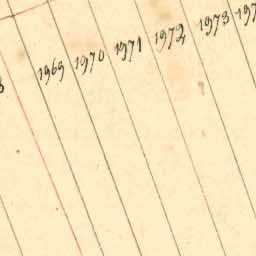 1969 1970 1971 1972 1973